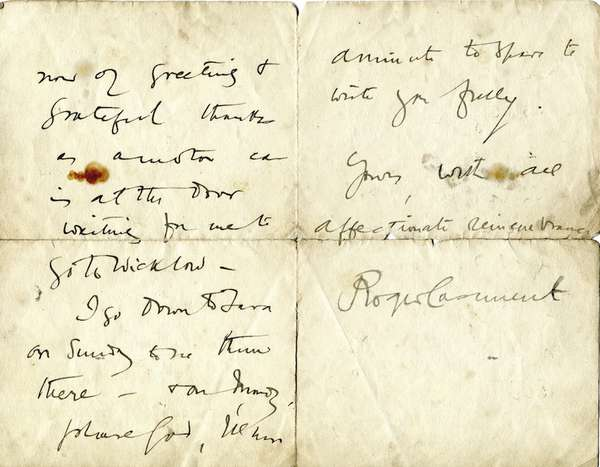 now of greeting &
grateful thanks
as a motor car
is at the door
waiting for me to
go to Wicklow —
I go down to Tara
on Sunday to see them
there — & on Monday,
please God, I'll
a minute to spare to
write you fully.
Yours, with all
affectionate remembrance
Roger Casement